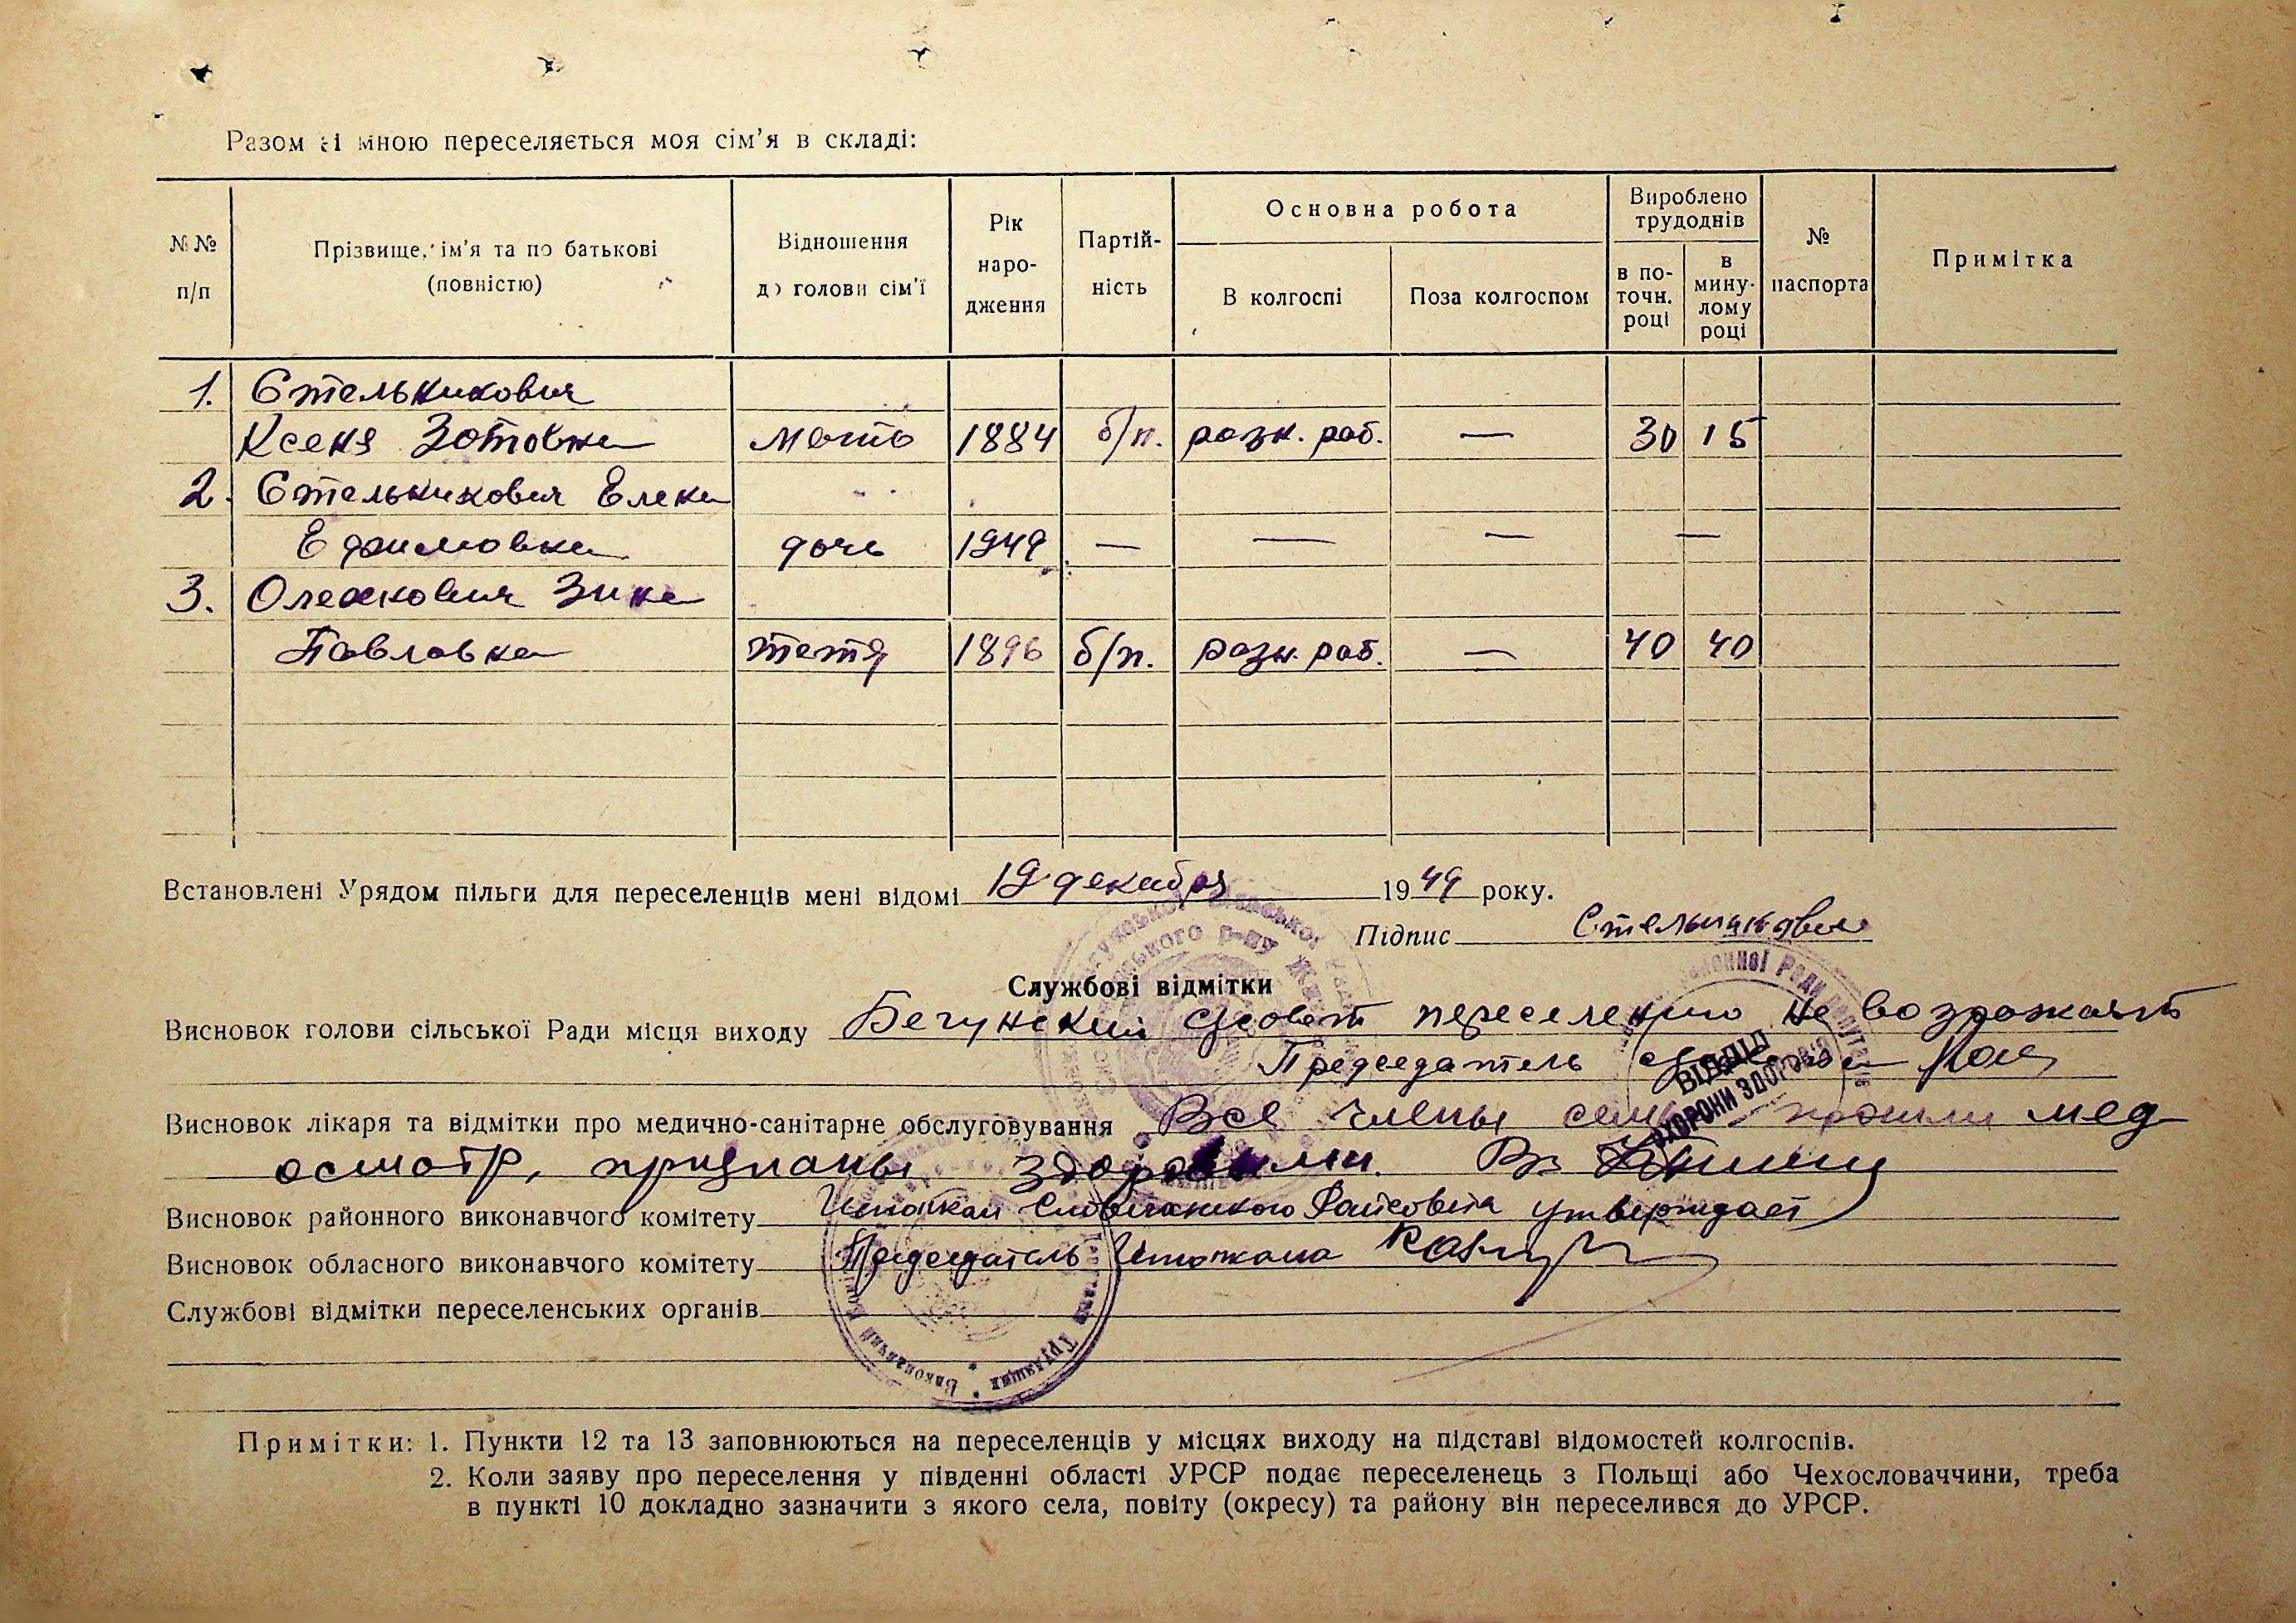 Разом зі мною переселяється моя сім’я в складі:
№№ п/п
Прізвище, ім’я та по батькові (повністю)
Відношення до голови сім’ї
Рік народження
Партійність
Основна робота
В колгоспі
Поза колгоспом
Вироблено трудоднів
в поточн. році
в минулому році
№ паспорта
Примітка
1. Стельникович
Ксеня Зотовна мать 1884 б/п. разн. раб. — 30 15
2. Стельникович Елена
Ефимовна дочь 1949 — — — —
3. Олехнович Зина
Павловна тетя 1896 б/п. разн. раб. — 40 40
Встановлені Урядом пільги для переселенців мені відомі 19 декабря 1949 року.
Підпис Стельникович
Службові відмітки
Висновок голови сільської Ради місця виходу Бегунский с/совет переселению не возражает
Председатель с/совета
Висновок лікаря та відмітки про медично-санітарне обслуговування Все члены семьи прошли мед
осмотр, признаны здоровыми. Вр
Висновок районного виконавчого комітету Исполком Словечанского Райсовета утверждает
Висновок обласного виконавчого комітету Председатель Исполкома
Службові відмітки переселенських органів
ВІДДІЛ
ОХОРОНИ ЗДОРОВ'Я
Примітки: 1. Пункти 12 та 13 заповнюються на переселенців у місцях виходу на підставі відомостей колгоспів.
2. Коли заяву про переселення у південні області УРСР подає переселенець з Польщі або Чехословаччини, треба
в пункті 10 докладно зазначити з якого села, повіту (окресу) та району він переселився до УРСР.